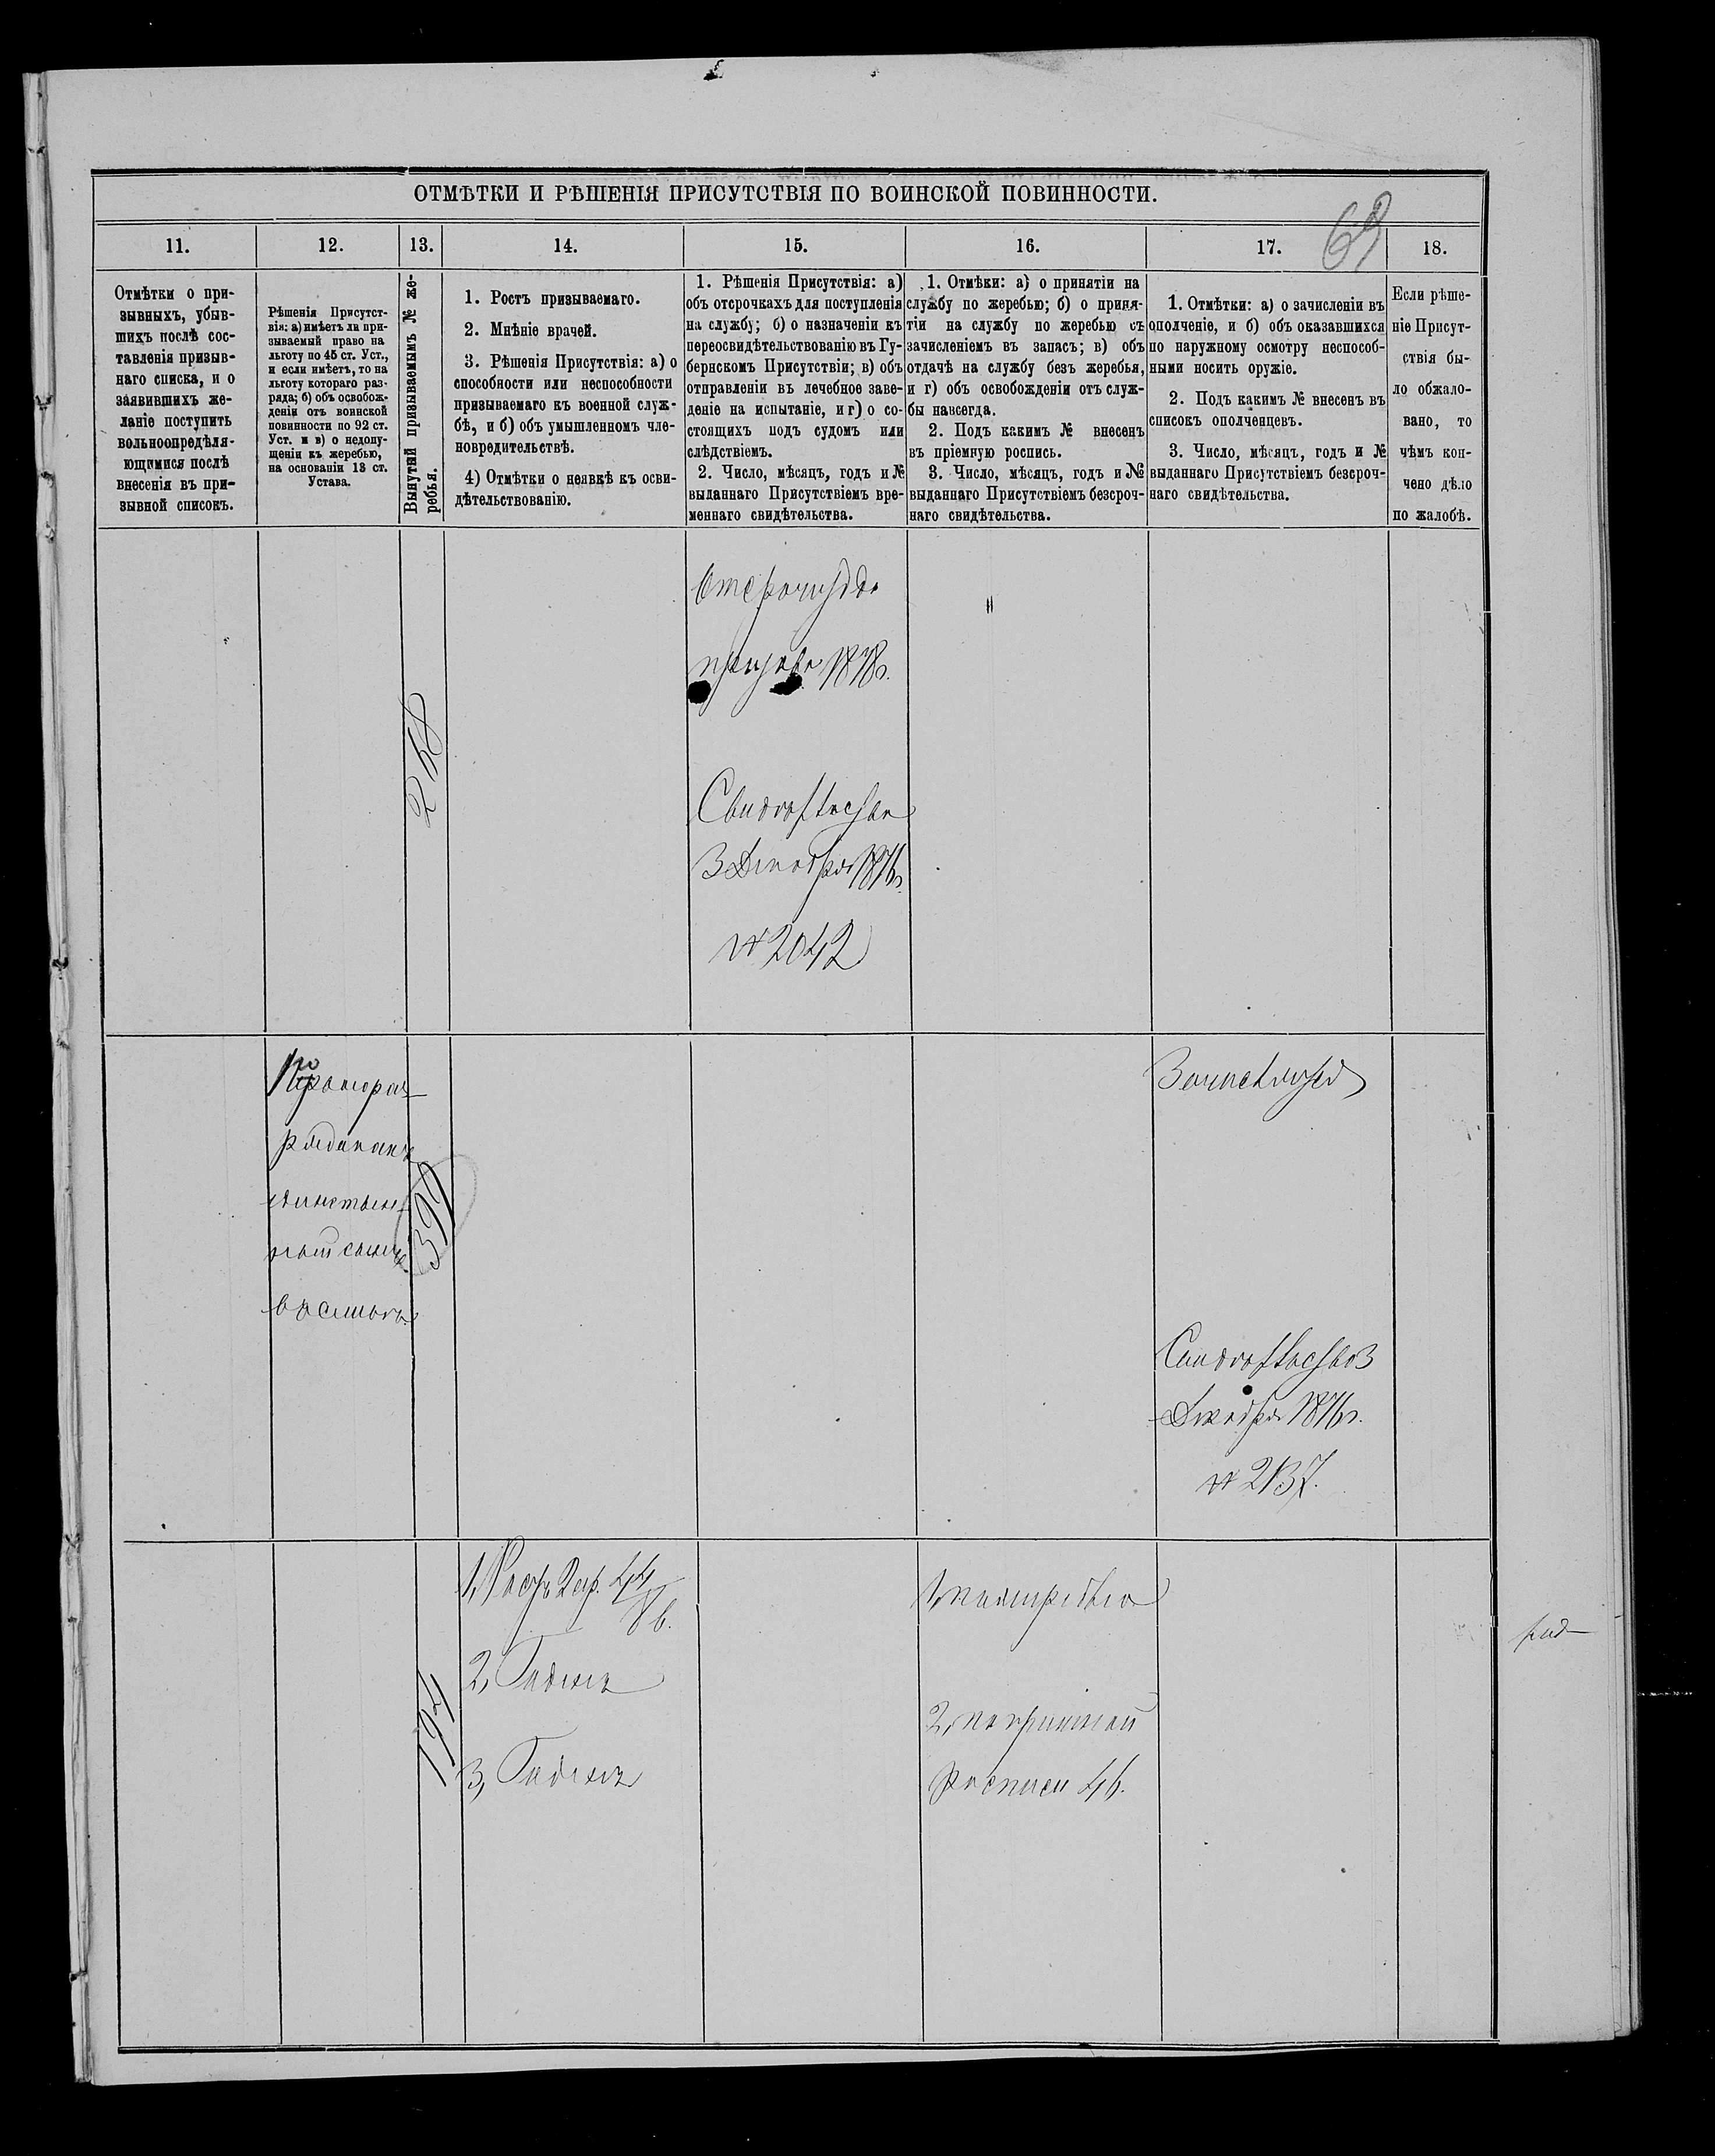 ОТМѢТКИ И РѢШЕНІЯ ПРИСУТСТВІЯ ПО ВОИНСКОЙ ПОВИННОСТИ.
69
11.
12.
13.
14.
15.
16.
17.
18.
Отмѣтки о при-
зывныхъ, убыв-
шихъ послѣ сос-
тавленія призыв-
наго списка, и о
заявившихъ же-
ланіе поступить
вольноопредѣля-
ющимися послѣ
внесенія въ при-
зывной списокъ.
Рѣшенія Присутст-
вія: а) имѣетъ ли при-
зываемый право на
льготу по 45 ст. Уст.,
и если имѣетъ, то на
льготу котораго раз-
ряда; б) объ освобож-
деніи отъ воинской
повинности по 92 ст.
Уст. и в) о недопу-
щеніи къ жеребью,
на основаніи 13 ст.
Устава.
Вынутый призываемымъ № же-
ребья.
1. Ростъ призываемаго.
2. Мнѣніе врачей.
3. Рѣшенія Присутствія: а) о
способности или неспособности
призываемаго къ военной служ-
бѣ, и б) объ умышленномъ чле-
новредительствѣ.
4) Отмѣтки о неявкѣ къ осви-
дѣтельствованію.
1. Рѣшенія Присутствія: а)
объ отсрочкахъ для поступленія
на службу; б) о назначеніи къ
переосвидѣтельствованію въ Гу-
бернскомъ Присутствіи; в) объ
отправленіи въ лечебное заве-
деніе на испытаніе, и г) о со-
стоящихъ подъ судомъ или
слѣдствіемъ.
2. Число, мѣсяцъ, годъ и №
выданнаго Присутствіемъ вре-
меннаго свидѣтельства.
1. Отмѣки: а) о принятіи на
службу по жеребью; б) о приня-
тіи на службу по жеребью съ
зачисленіемъ въ запасъ; в) объ
отдачѣ на службу безъ жеребья,
и г) объ освобожденіи отъ служ-
бы навсегда.
2. Подъ какимъ № внесенъ
въ пріемную роспись.
3. Число, мѣсяцъ, годъ и №
выданнаго Присутствіемъ безсроч-
наго свидѣтельства.
1. Отмѣтки: а) о зачисленіи въ
ополченіе, и б) объ оказавшихся
по наружному осмотру неспособ-
ными носить оружіе.
2. Подъ какимъ № внесенъ въ
списокъ ополченцевъ.
3. Число, мѣсяцъ, годъ и №
выданнаго Присутствіемъ безсроч-
наго свидѣтельства.
Если рѣше-
ніе Присут-
ствія бы-
ло обжало-
вано, то
чѣмъ кон-
чено дѣло
по жалобѣ.
268
до
призыва 1878г.
Свидѣтельство
3 Декабря 1876г.
№ 2042
ряда какъ
единствен-
ный сынъ
въ семьѣ
399
Свидѣтельство 3
Декабря 1876г.
№ 2137.
194
1, Ростъ 2 ар. 4 4/8 в.
2, Годенъ
3, Годенъ
2, по пріемной
росписи 46.